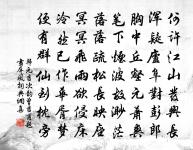 何許江山發興長
渾疑廬阜對彭郎
胸中丘壑元蕭爽
筆下煙波故渺茫
落落疏松長映座
冥冥風雨欲侵床
泠然已作華胥夢
便有群仙到枕旁